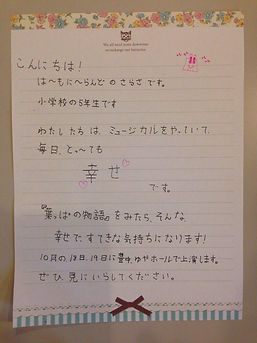 We all need some downtime
to recharge our batteries
こんにちは!
は〜もに〜らんどのさらさです。
小学校の5年生です
わたしたちは、ミュージカルをやっていて、
毎日、と〜っても
幸せ
です。
"葉っぱの物語"をみたら、そんな、
幸せで、すてきな気持ちになります!
10月の18日、19日に
ゆやホールで上演します。
ぜひ、見にいらしてください。